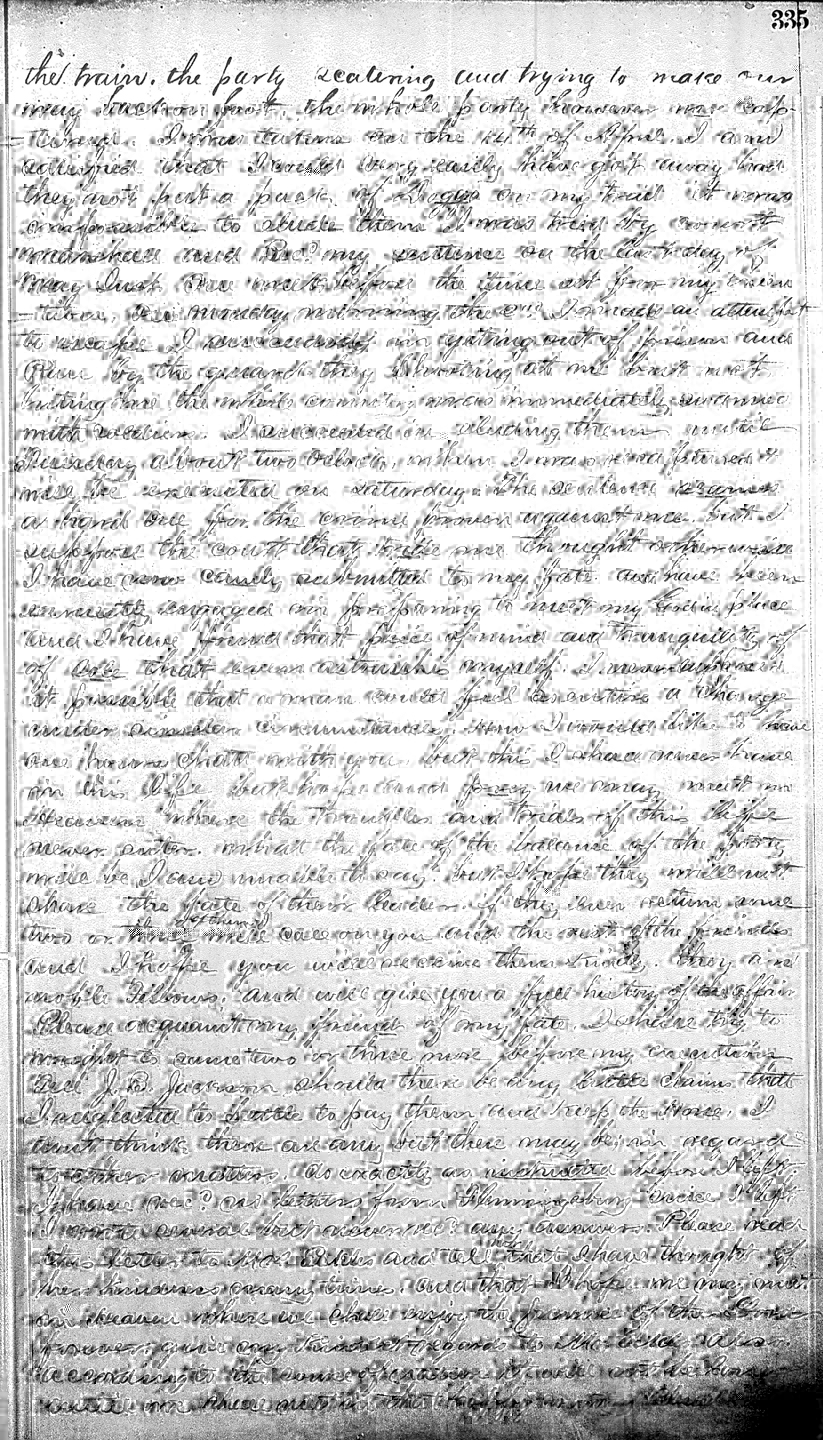 335
the train. the party scatering and trying to make our
way back on foot, the whole party however were cap-
tured. I was taken on the 14th of Apr. I am
satisfied that I could very easily have got away had
they not put a pack of Dogs on my trail it was
impossible to elude them I was tried by court
marshall and Recd my sentence on the last day of
May Just one week before the time set for my execu-
tion, on monday morning the 2nd I made an attempt
to escape I succeeded in getting out of prison and
Run by the guards they Shooting at me but not
hitting me the whole country was immediately swarmed
with soldiers. I succeeded in eluding them until
Tuesday about two Oclock, when I was
will be executed on saturday. The sentence seems
a hard one for the crime proven against me. but I
suppose the court that tried me thought otherwise
I have now calmly submitted to my fate and have been
earnestly engaged in preparing to meet my God in place
and I have found that peace of mind and tranquility of
of that even astonishes myself. I never supposed
it possible that a man could feel a change
under similar circumstances. How I would like to have
one hours chatt with you, but this I shall never have
in this life but hope and pray we may meet in
Heaven where the troubles and trials of this life
never enter. what the fate of the balance of the party
will be I am unable to say. but I hope they will not
share the fate of their leader. if they ever return some
two or three of them will call on you and the rest of the friends
and I hope you will receive them kindly. they are
noble Fellows. and will give you a full history of the affair
Please acquaint my friends of my fate. I shall try to
write to some two or three more before my execution
Tell J. B. Jackson should there be any little claims that
I neglected to settle to pay them and keep the Horse. I
dont think there are any but there may be. in regard
to other matters. do exactly as instructed before I left
I have Recd no letters from Flemingsburg since I left
I wrote several but never recd any answers. Please read
this letter to and tell them that I have thought of
kindness many times. and that I hope we may meet
in Heaven where we shall enjoy the presence of the
forever. give my kindest regards to
according to the course of nature it will not be long
until we shall meet in that happy